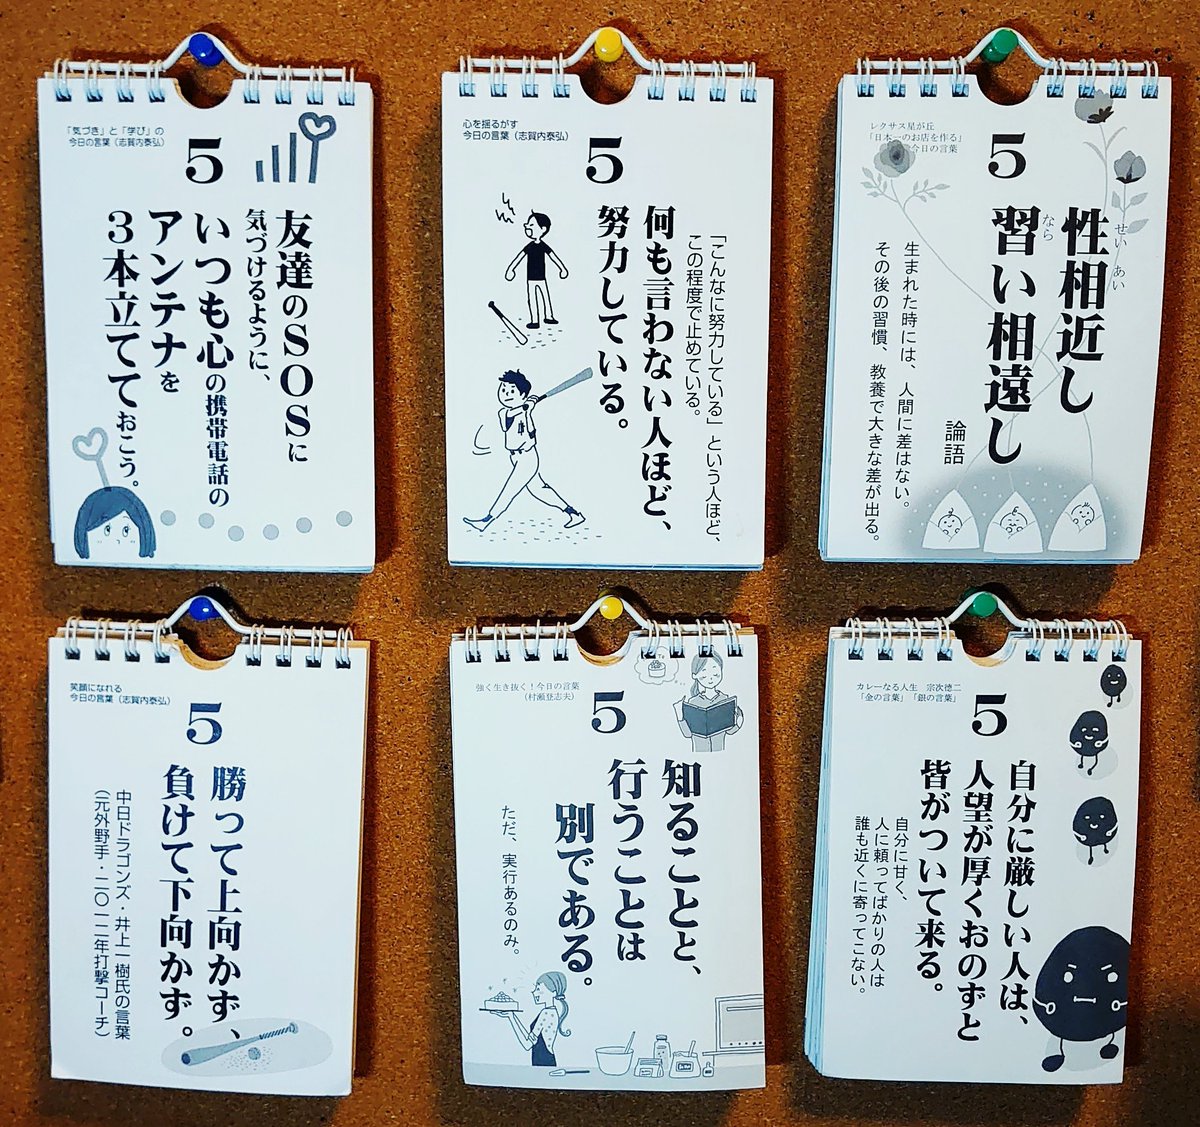 「気づき」と「学び」の
今日の言葉（志賀内泰弘）
5
友達のSOSに
気づけるように、
いつも心の携帯電話の
アンテナを
3本立てておこう。
心を揺るがす
今日の言葉（志賀内泰弘）
5
「こんなに努力している」という人ほど、
この程度で止めている。
何も言わない人ほど、
努力している。
レクサス星が丘
「日本一のお店を作る」
今日の言葉
5
性相近し
せい あい
習い相遠し
なら
論語
生まれた時には、人間に差はない。
その後の習慣、教養で大きな差が出る。
笑顔になれる
今日の言葉（志賀内泰弘）
5
勝って上向かず、
負けて下向かず。
中日ドラゴンズ・井上一樹氏の言葉
（元外野手・二〇一二年打撃コーチ）
強く生き抜く！今日の言葉
（村瀬登志夫）
5
知ることと、
行うことは
別である。
ただ、実行あるのみ。
カレーなる人生　宗次德二
「金の言葉」「銀の言葉」
5
自分に厳しい人は、
人望が厚くおのずと
皆がついて来る。
自分に甘く、
人に頼ってばかりの人は
誰も近くに寄ってこない。